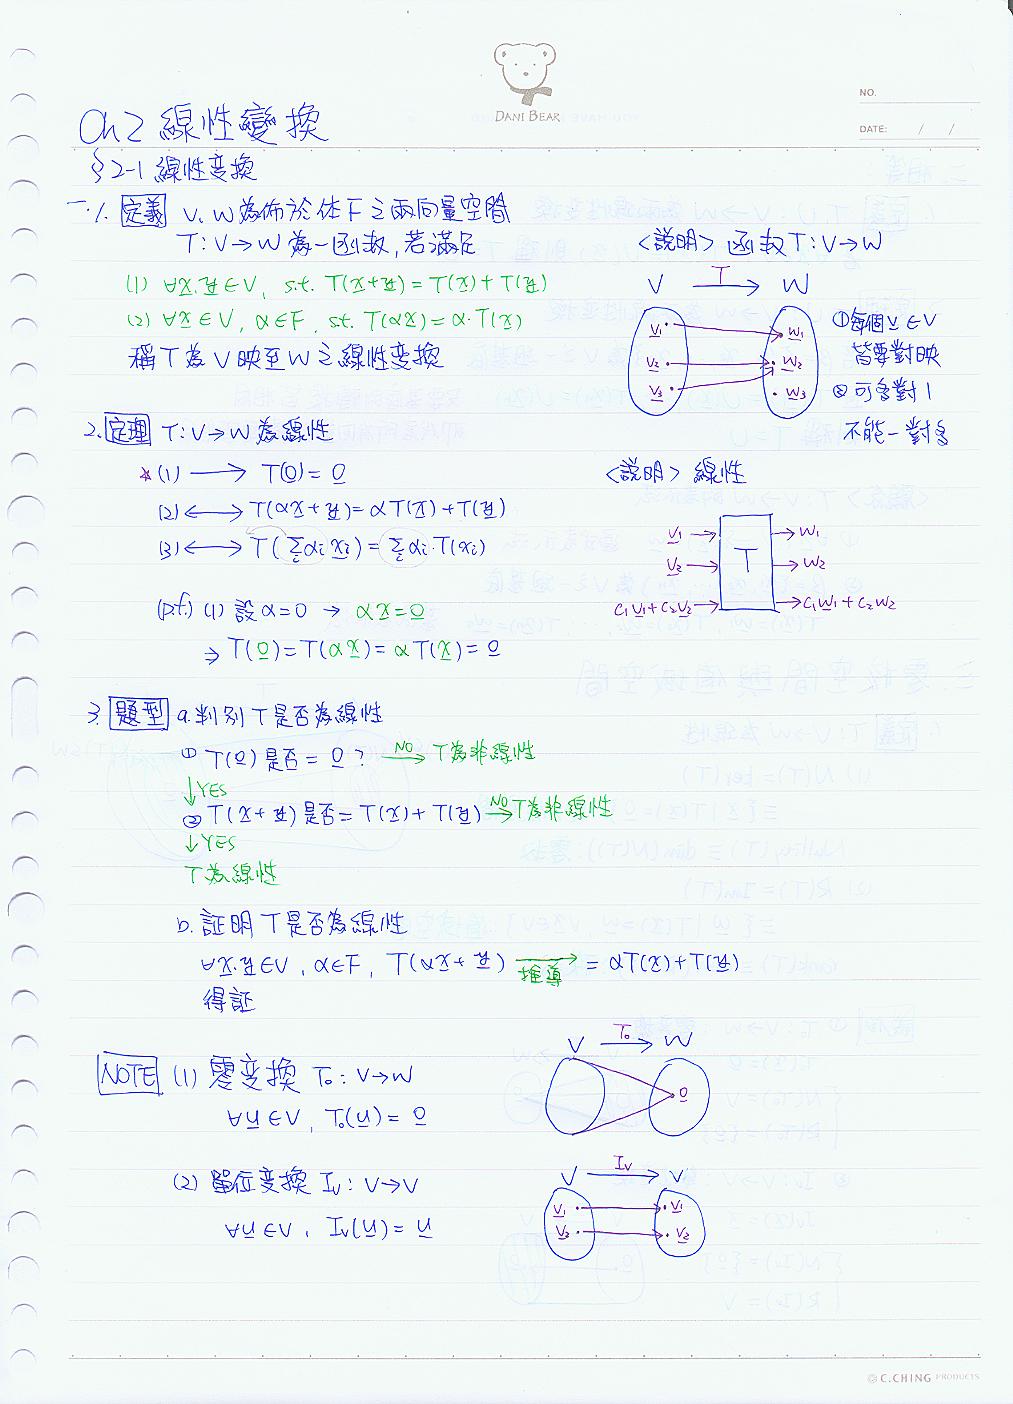 DANI BEAR
NO.
DATE: / /
Ch2 線性變換
§2-1 線性变换
一、1. 定義 V、W為佈於体F之兩向量空間
T: V→W 為一函数, 若滿足
(1) ∀x, y∈V, s.t. T(x+y) = T(x) + T(y)
(2) ∀x∈V, α∈F, s.t. T(αx) = α·T(x)
稱T為V映至W之線性变換
<説明> 函数T: V→W
V T W
v1 w1
v2 w2
v3 w3
①每個v∈V
皆要對映
②可多對1
不能一對多
2. 定理 T: V→W 為線性
☆(1) → T(0) = 0
(2) ↔ T(αx+y) = αT(x) + T(y)
(3) ↔ T(Σαi xi) = Σαi·T(xi)
(p.f.) (1) 設α=0 → αx=0
⇒ T(0) = T(αx) = αT(x) = 0
<説明> 線性
v1 → T → w1
v2 → → w2
c1v1+c2v2 → → c1w1+c2w2
3. 題型 a. 判別T是否為線性
① T(0) 是否 = 0 ? NO→ T為非線性
↓YES
② T(x+y) 是否 = T(x) + T(y) NO→ T為非線性
↓YES
T為線性
b. 証明T是否為線性
∀x, y∈V, α∈F, T(αx+y) 推導→ = αT(x) + T(y)
得証
NOTE (1) 零变換 T0: V→W
∀u∈V, T0(u) = 0
V T0 W
0
(2) 單位变換 IV: V→V
∀u∈V, IV(u) = u
V IV V
v1 v1
v2 v2
C.CHING PRODUCTS